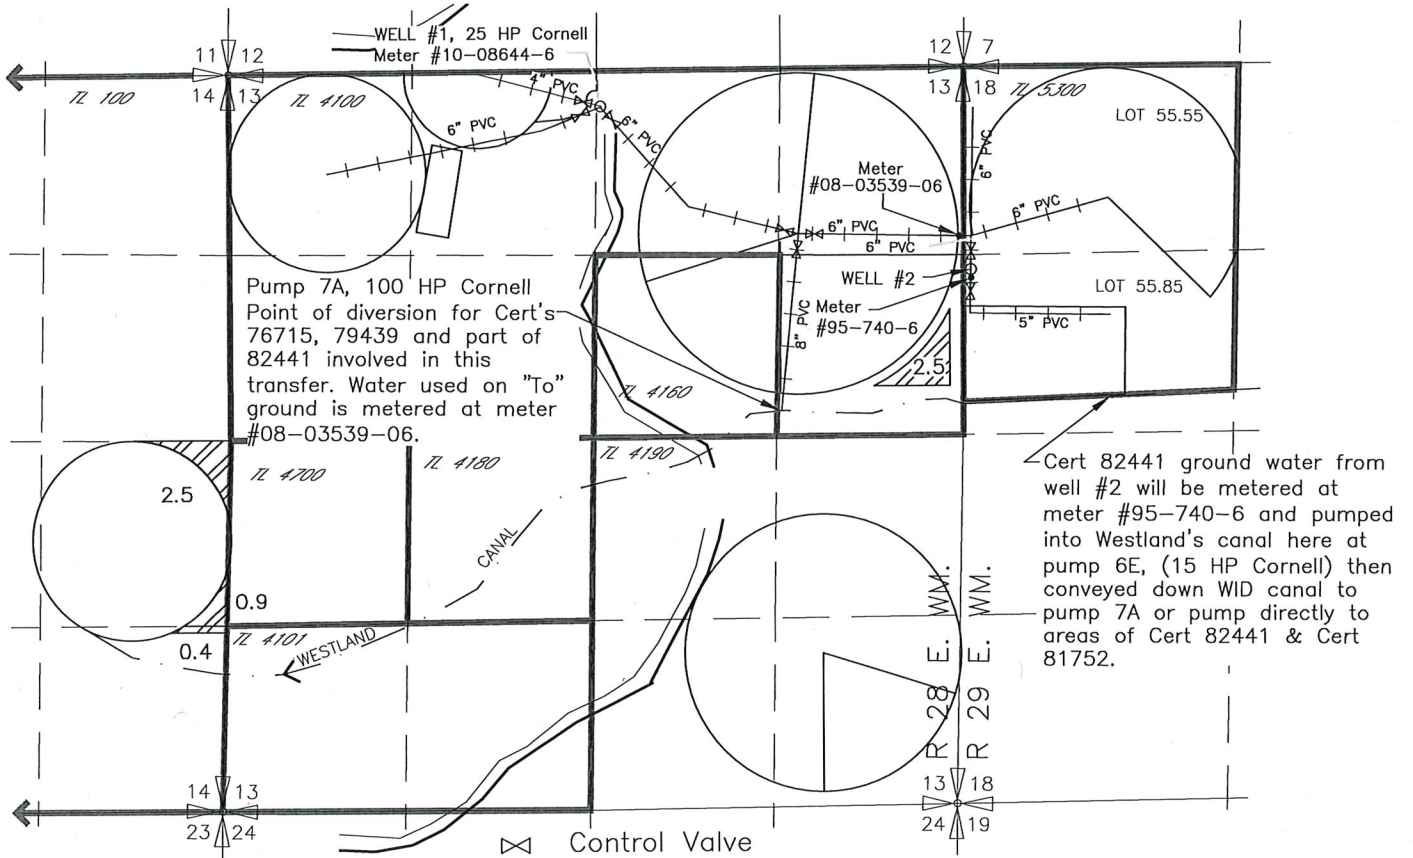 WELL #1, 25 HP Cornell
Meter #10-08644-6
11 12
14 13
12 7
13 18
TL 100
TL 4100
TL 5300
LOT 55.55
4" PVC
6" PVC
6" PVC
6" PVC
Meter
#08-03539-06
6" PVC
6" PVC
6" PVC
WELL #2
LOT 55.85
Meter
#95-740-6
8" PVC
5" PVC
2.5
Pump 7A, 100 HP Cornell
Point of diversion for Cert's
76715, 79439 and part of
82441 involved in this
transfer. Water used on "To"
ground is metered at meter
#08-03539-06.
TL 4160
TL 4190
TL 4700
TL 4180
2.5
CANAL
0.9
TL 4101
0.4
WESTLAND
Cert 82441 ground water from
well #2 will be metered at
meter #95-740-6 and pumped
into Westland's canal here at
pump 6E, (15 HP Cornell) then
conveyed down WID canal to
pump 7A or pump directly to
areas of Cert 82441 & Cert
81752.
R 28 E. WM.
R 29 E. WM.
14 13
23 24
13 18
24 19
Control Valve